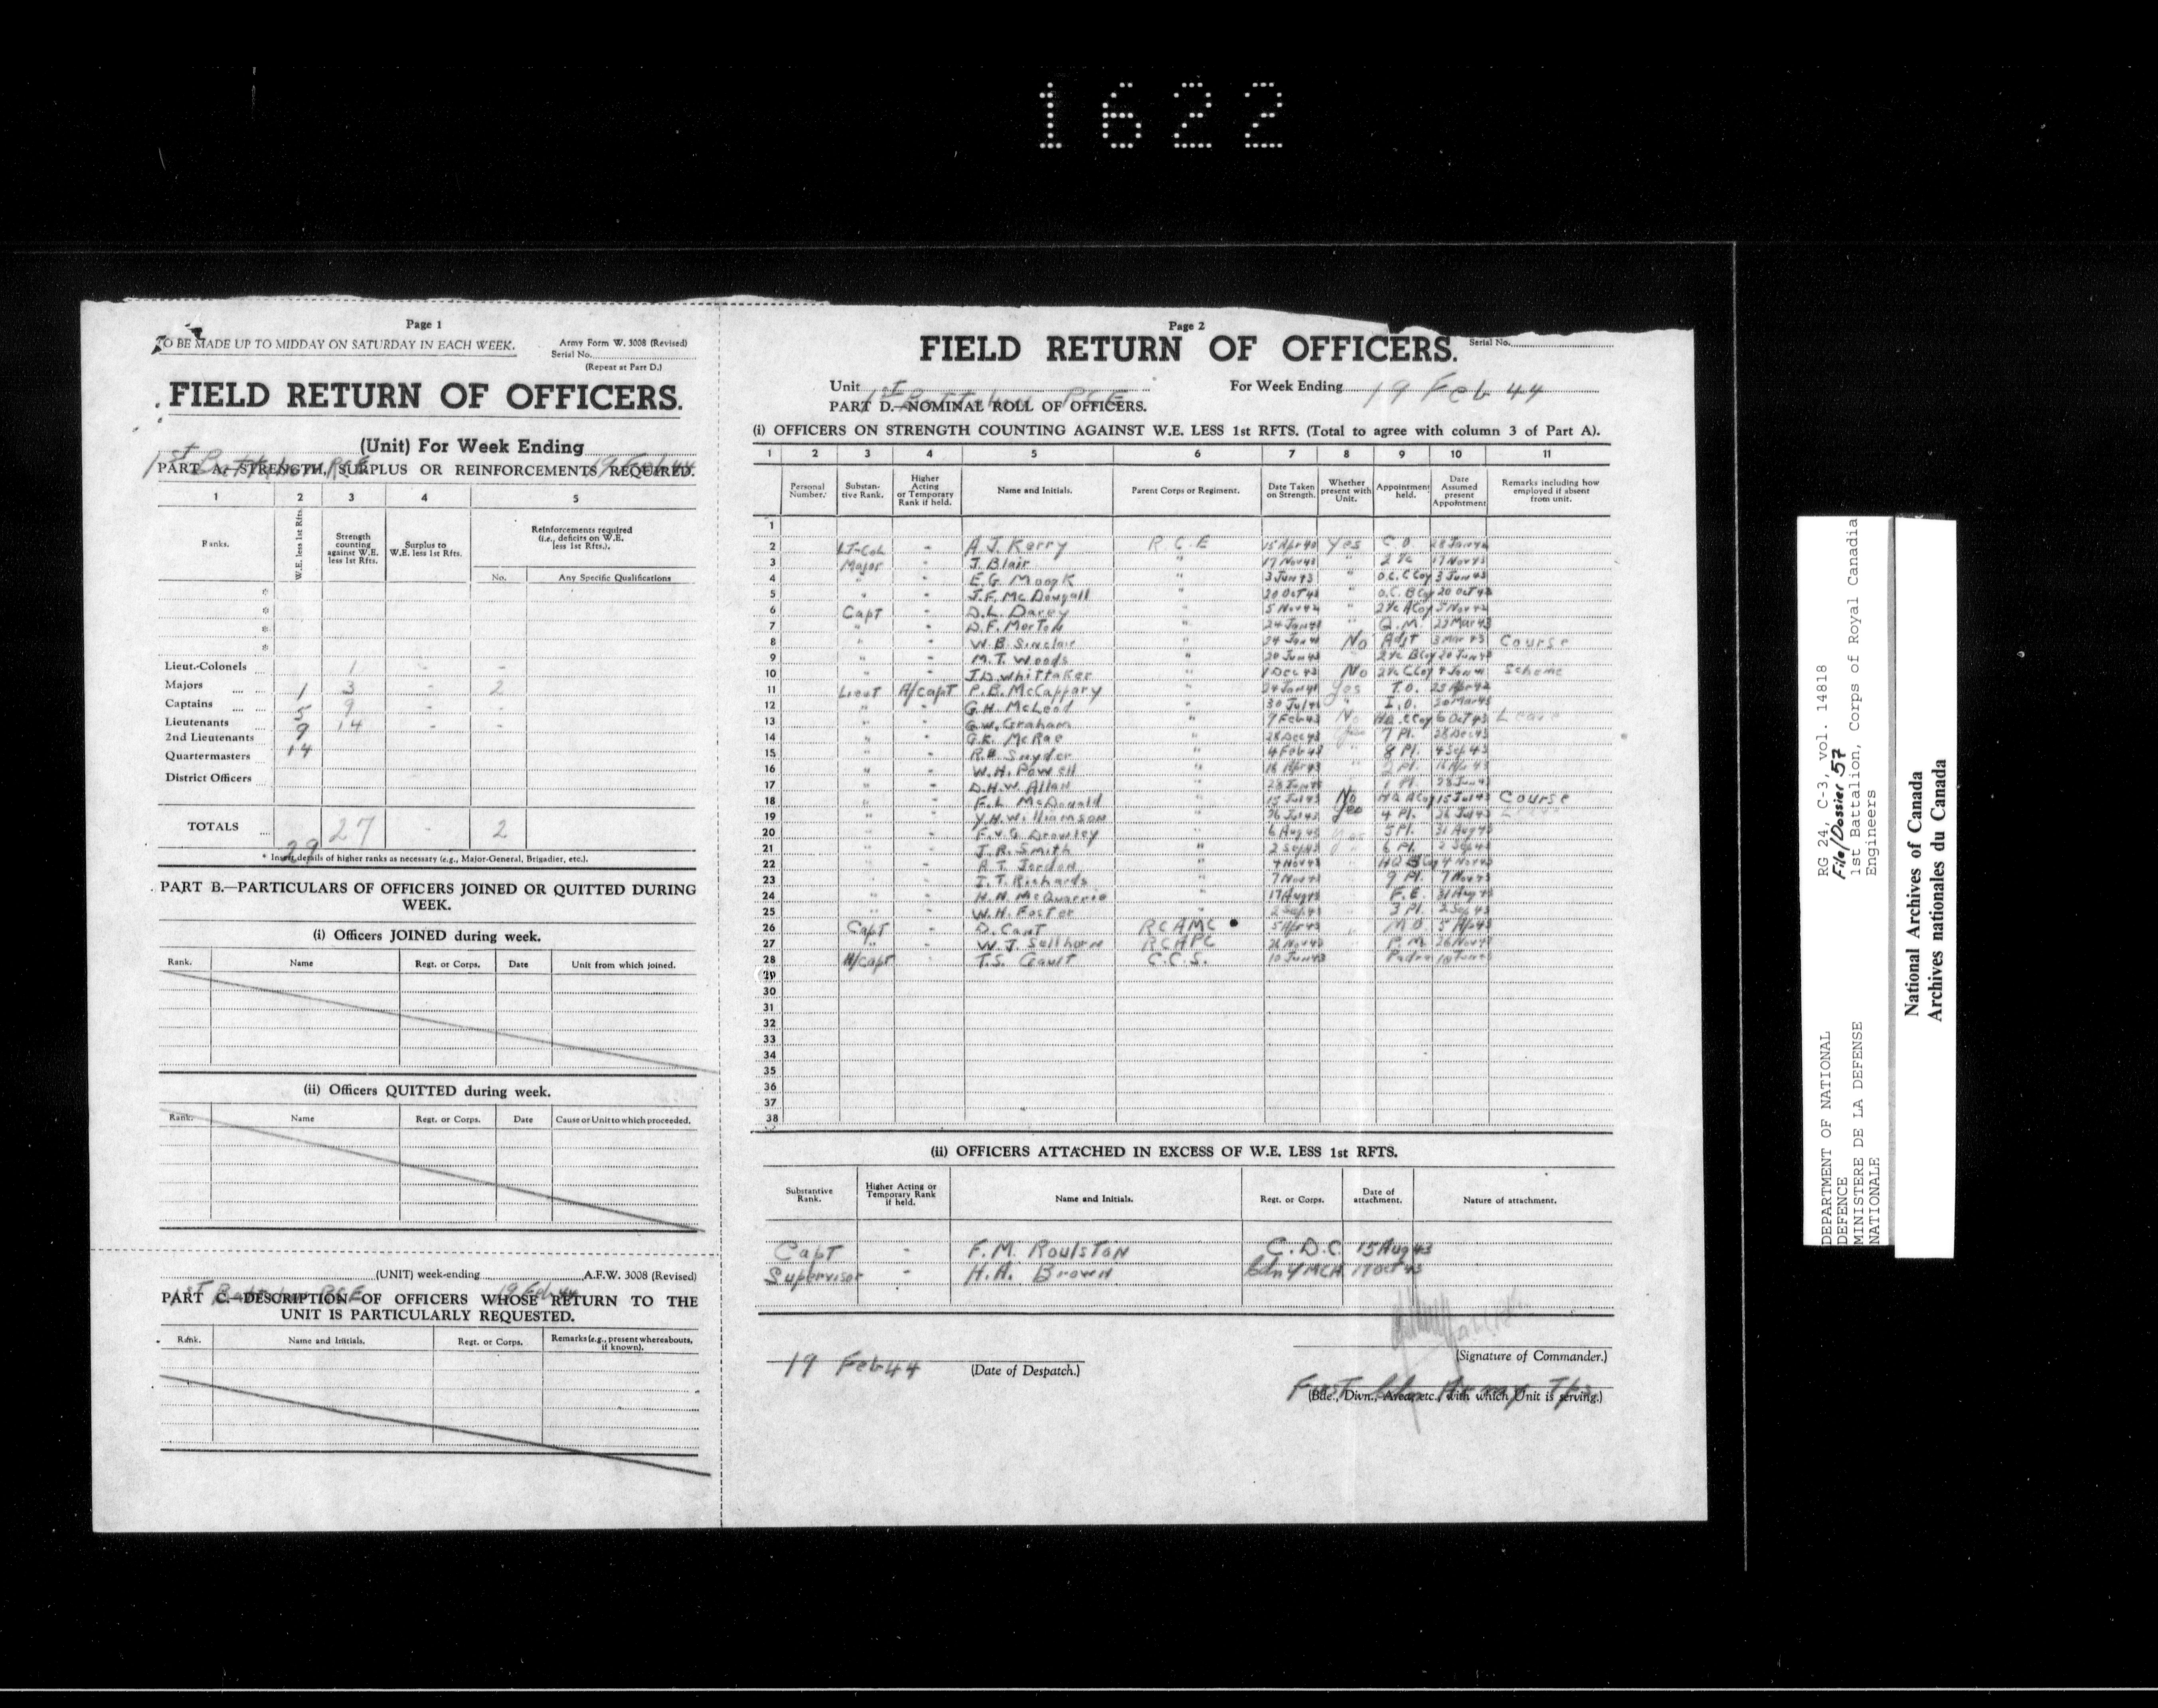 1622
Page 1
TO BE MADE UP TO MIDDAY ON SATURDAY IN EACH WEEK.
Army Form W. 3008 (Revised)
Serial No.
(Repeat at Part D.)
FIELD RETURN OF OFFICERS.
(Unit) For Week Ending
1st Battalion RCE 19 Feb 44
PART A.—STRENGTH, SURPLUS OR REINFORCEMENTS REQUIRED.
1 2 3 4 5
Ranks.
W.E. less 1st Rfts.
Strength counting against W.E. less 1st Rfts.
Surplus to W.E. less 1st Rfts.
Reinforcements required (i.e., deficits on W.E. less 1st Rfts.).
No. Any Specific Qualifications
*
*
*
*
Lieut.-Colonels 1 - -
Majors 1 3 - 2
Captains 5 9 - -
Lieutenants 9 14 - -
2nd Lieutenants
Quartermasters 14
District Officers
TOTALS 29 27 - 2
* Insert details of higher ranks as necessary (e.g., Major-General, Brigadier, etc.).
PART B.—PARTICULARS OF OFFICERS JOINED OR QUITTED DURING
WEEK.
(i) Officers JOINED during week.
Rank. Name Regt. or Corps. Date Unit from which joined.
(ii) Officers QUITTED during week.
Rank. Name Regt. or Corps. Date Cause or Unit to which proceeded.
(UNIT) week-ending A.F.W. 3008 (Revised)
1st Battalion RCE 19 Feb 44
PART C.—DESCRIPTION OF OFFICERS WHOSE RETURN TO THE
UNIT IS PARTICULARLY REQUESTED.
Rank. Name and Initials. Regt. or Corps. Remarks (e.g., present whereabouts, if known).
Page 2
FIELD RETURN OF OFFICERS.
Serial No.
Unit 1st Battalion RCE For Week Ending 19 Feb 44
PART D.—NOMINAL ROLL OF OFFICERS.
(i) OFFICERS ON STRENGTH COUNTING AGAINST W.E. LESS 1st RFTS. (Total to agree with column 3 of Part A).
1 2 3 4 5 6 7 8 9 10 11
Personal Number.
Substantive Rank.
Higher Acting or Temporary Rank if held.
Name and Initials.
Parent Corps or Regiment.
Date Taken on Strength.
Whether present with Unit.
Appointment held.
Date Assumed present Appointment
Remarks including how employed if absent from unit.
1
2 LT-Col - A.J. Kerry R.C.E 15 Apr 40 Yes C.O.
3 Major - J. Blair " 17 Nov 43 " 2 i/c 17 Nov 43
4 " - E.G. Moogk " 3 Jun 43 " O.C. C Coy 3 Jun 43
5 " - J.F. McDougall " 20 Oct 43 " O.C. B Coy 20 Oct 43
6 Capt - D.L. Darey " 5 Nov 42 " 2 i/c A Coy 5 Nov 42
7 " - D.F. Morton " 24 Jan 41 " Q.M. 23 Mar 43
8 " - W.B. Sinclair " 24 Jan 41 No Adjt 3 Mar 43 Course
9 " - M.T. Woods " 20 Jun 43 2 i/c B Coy 20 Jun 43
10 " - J.D. Whittaker " 1 Dec 42 No 2 i/c C Coy Scheme
11 Lieut A/Capt P.B. McCaffary " 24 Jan 41 Yes T.O.
12 " - G.H. McLeod " 30 Jul 41 " I.O.
13 " - G.W. Graham " 7 Feb 43 No 6 Oct 43 Leave
14 " - G.K. McRae " 28 Dec 43 7 Pl. 28 Dec 43
15 " - R.B. Snyder " 4 Feb 43 8 Pl. 4 Sep 43
16 " - W.H. Powell " 16 Apr 43 2 Pl. 16 Apr 43
17 " - D.H.W. Allan " 1 Pl.
18 " - F.L. McDonald " 15 Jul 43 No HQ A Coy 15 Jul 43 Course
19 " - " 26 Jul 43 Yes 4 Pl. 26 Jul 43
20 " - " 6 Aug 43 5 Pl. 31 Aug 43
21 " - J.R. Smith " 2 Sep 43 6 Pl. 2 Sep 43
22 " - R.T. Jordon " 4 Nov 43 HQ B Coy 4 Nov 43
23 " - I.T. Richards " 7 Nov 43 9 Pl. 7 Nov 43
24 " - H.N. McQuarrie " 17 Aug 43 F.E. 31 Aug 43
25 " - W.H. Foster " 2 Sep 43 3 Pl. 2 Sep 43
26 Capt - D. Cant RCAMC 5 Apr 43 M.O. 5 Apr 43
27 " - W.J. Sellhorn RCAPC 26 Nov 42 P.M. 26 Nov 42
28 H/Capt - T.S. Gault C.C.S. 10 Jun 43 Padre 10 Jun 43
29
30
31
32
33
34
35
36
37
38
(ii) OFFICERS ATTACHED IN EXCESS OF W.E. LESS 1st RFTS.
Substantive Rank.
Higher Acting or Temporary Rank if held.
Name and Initials.
Regt. or Corps.
Date of attachment.
Nature of attachment.
Capt - F.M. Roulston C.D.C. 15 Aug 43
Supervisor - H.A. Brown Cdn YMCA 17 Oct 43
19 Feb 44
(Date of Despatch.)
(Signature of Commander.)
First Cdn Army Tps
(Bde., Divn., Area, etc., with which Unit is serving.)
DEPARTMENT OF NATIONAL
DEFENCE
MINISTERE DE LA DEFENSE
NATIONALE
RG 24, C-3, vol. 14818
File/Dossier 57
1st Battalion, Corps of Royal Canadia
Engineers
National Archives of Canada
Archives nationales du Canada